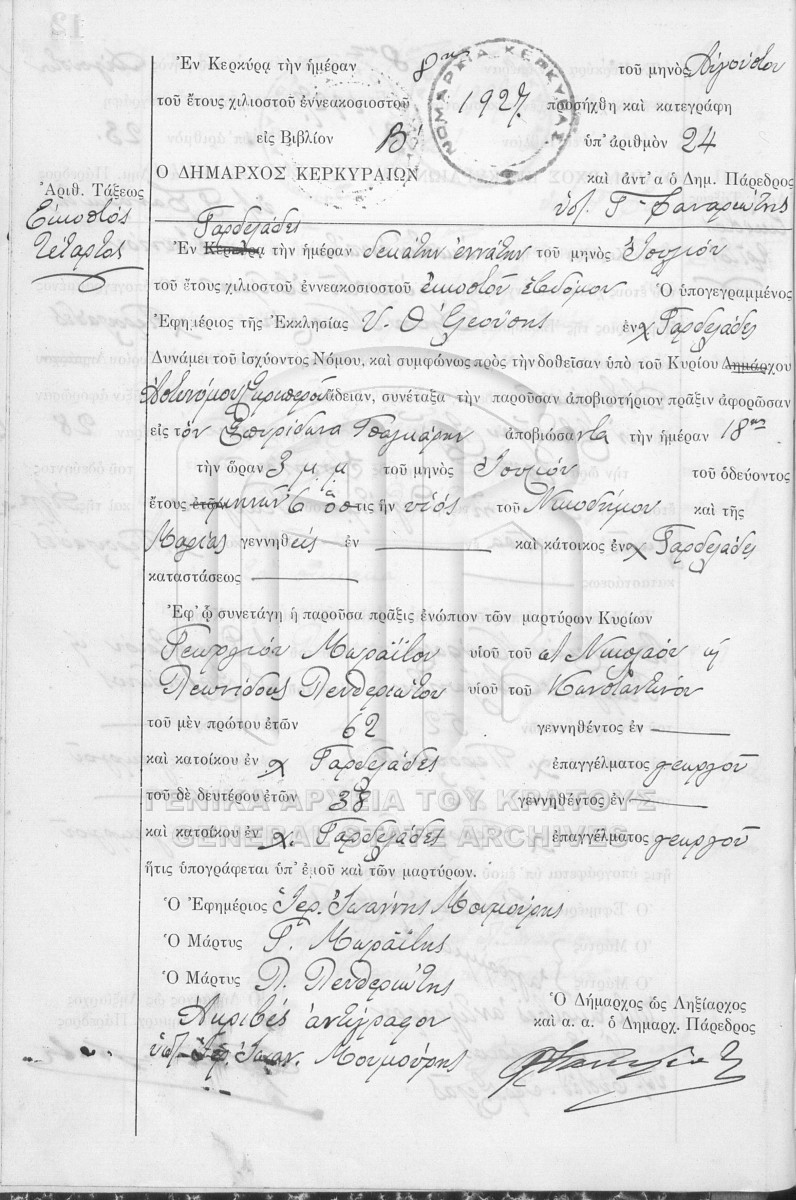 Ἐν Κερκύρᾳ τὴν ἡμέραν 8ην τοῦ μηνὸς Αὐγούστου
τοῦ ἔτους χιλιοστοῦ ἐννεακοσιοστοῦ 1927 προσήχθη καὶ κατεγράφη
εἰς Βιβλίον Β' ὑπ' ἀριθμὸν 24
ΝΟΜΑΡΧΙΑ ΚΕΡΚΥΡΑΣ
Ο ΔΗΜΑΡΧΟΣ ΚΕΡΚΥΡΑΙΩΝ καὶ ἀντ' α ὁ Δημ. Πάρεδρος
Γ. Φαναριώτης
Ἀριθ. Τάξεως
Εἰκοστὸς
Τέταρτος
Γαρδελάδες
Ἐν Κερκύρᾳ τὴν ἡμέραν δεκάτην ἐννάτην τοῦ μηνὸς Ἰουλίου
τοῦ ἔτους χιλιοστοῦ ἐννεακοσιοστοῦ εἰκοστοῦ ἑβδόμου Ὁ ὑπογεγραμμένος
Ἐφημέριος τῆς Ἐκκλησίας Υ. Θ. Ἐλεούσης ἐν χ Γαρδελάδες
Δυνάμει τοῦ ἰσχύοντος Νόμου, καὶ συμφώνως πρὸς τὴν δοθεῖσαν ὑπὸ τοῦ Κυρίου Δημάρχου
Ἀστυνόμου Σκριπεροῦ ἄδειαν, συνέταξα τὴν παροῦσαν ἀποβιωτήριον πρᾶξιν ἀφορῶσαν
εἰς τὸν Σπυρίδωνα ἀποβιώσαντα τὴν ἡμέραν 18ην
τὴν ὥραν 3 μ.μ. τοῦ μηνὸς Ἰουλίου τοῦ ὁδεύοντος
ἔτους ἐτῶν μηνῶν 6 ὅστις ἦν υἱὸς τοῦ Νικοδήμου καὶ τῆς
Μαρίας γεννηθεὶς ἐν καὶ κάτοικος ἐν χ Γαρδελάδες
καταστάσεως
Ἐφ' ᾧ συνετάγη ἡ παροῦσα πρᾶξις ἐνώπιον τῶν μαρτύρων Κυρίων
Γεωργίου Μωραΐτου υἱοῦ τοῦ Νικολάου ἢ
Λεωνίδους Πενθεριώτου υἱοῦ τοῦ Κωνσταντίνου
τοῦ μὲν πρώτου ἐτῶν 62 γεννηθέντος ἐν
καὶ κατοίκου ἐν χ Γαρδελάδες ἐπαγγέλματος γεωργοῦ
τοῦ δὲ δευτέρου ἐτῶν 38 γεννηθέντος ἐν
ΓΕΝΙΚΑ ΑΡΧΕΙΑ ΤΟΥ ΚΡΑΤΟΥΣ
καὶ κατοίκου ἐν χ. Γαρδελάδες ἐπαγγέλματος γεωργοῦ
GENERAL STATE ARCHIVES
ἥτις ὑπογράφεται ὑπ' ἐμοῦ καὶ τῶν μαρτύρων.
Ὁ Ἐφημέριος Ἱερ. Ἰωάννης Μουμούρης
Ὁ Μάρτυς Γ. Μωραΐτης
Ὁ Μάρτυς Λ. Πενθεριώτης
Ὁ Δήμαρχος ὡς Ληξίαρχος
Ἀκριβὲς ἀντίγραφον
καὶ α. α. ὁ Δημαρχ. Πάρεδρος
Ἱερ. Ἰωαν. Μουμούρης